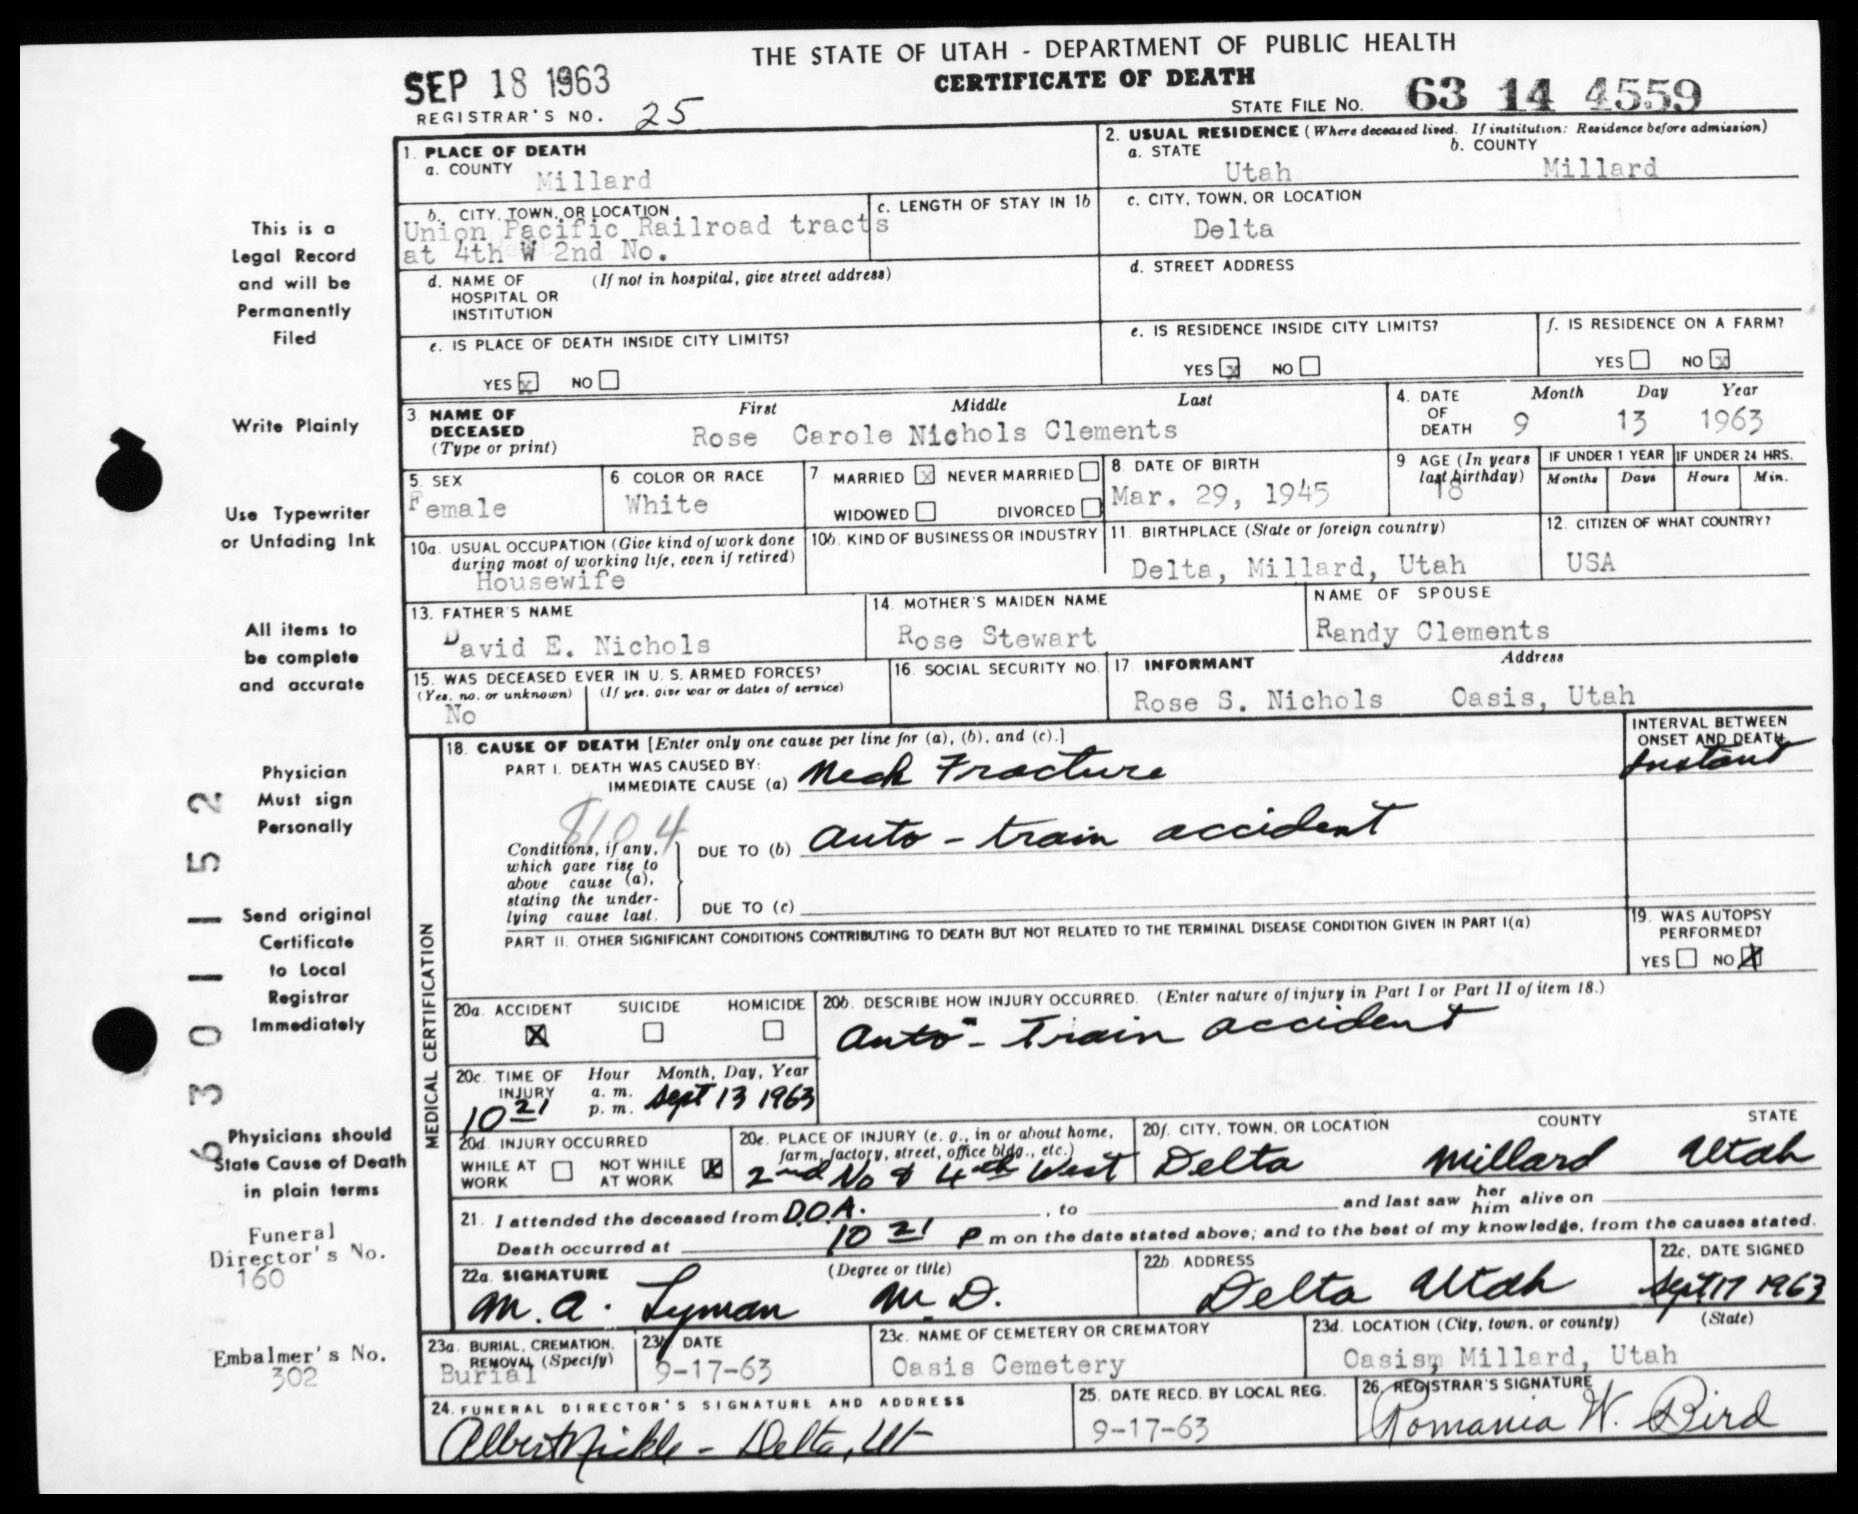 THE STATE OF UTAH - DEPARTMENT OF PUBLIC HEALTH
CERTIFICATE OF DEATH
SEP 18 1963
REGISTRAR'S NO. 25
STATE FILE NO. 63 14 4559
1. PLACE OF DEATH
a. COUNTY
Millard
2. USUAL RESIDENCE (Where deceased lived. If institution: Residence before admission)
a. STATE
Utah
b. COUNTY
Millard
b. CITY, TOWN, OR LOCATION
Union Pacific Railroad tracts
at 4th W 2nd No.
c. LENGTH OF STAY IN 1b
c. CITY, TOWN, OR LOCATION
Delta
d. NAME OF HOSPITAL OR INSTITUTION
(If not in hospital, give street address)
d. STREET ADDRESS
e. IS PLACE OF DEATH INSIDE CITY LIMITS?
YES x NO
e. IS RESIDENCE INSIDE CITY LIMITS?
YES x NO
f. IS RESIDENCE ON A FARM?
YES NO x
3 NAME OF DECEASED
(Type or print)
First Middle Last
Rose Carole Nichols Clements
4. DATE OF DEATH
Month Day Year
9 13 1963
5. SEX
Female
6 COLOR OR RACE
White
7 MARRIED x NEVER MARRIED
WIDOWED DIVORCED
8. DATE OF BIRTH
Mar. 29, 1945
9 AGE (In years last birthday)
18
IF UNDER 1 YEAR
Months Days
IF UNDER 24 HRS.
Hours Min.
10a. USUAL OCCUPATION (Give kind of work done during most of working life, even if retired)
Housewife
10b. KIND OF BUSINESS OR INDUSTRY
11. BIRTHPLACE (State or foreign country)
Delta, Millard, Utah
12. CITIZEN OF WHAT COUNTRY?
USA
13. FATHER'S NAME
David E. Nichols
14. MOTHER'S MAIDEN NAME
Rose Stewart
NAME OF SPOUSE
Randy Clements
15. WAS DECEASED EVER IN U. S. ARMED FORCES?
(Yes, no, or unknown) (If yes, give war or dates of service)
No
16. SOCIAL SECURITY NO.
17 INFORMANT Address
Rose S. Nichols Oasis, Utah
MEDICAL CERTIFICATION
18. CAUSE OF DEATH [Enter only one cause per line for (a), (b), and (c).]
INTERVAL BETWEEN ONSET AND DEATH
PART I. DEATH WAS CAUSED BY:
IMMEDIATE CAUSE (a) Neck Fracture
Instant
8104
Conditions, if any, which gave rise to above cause (a), stating the underlying cause last.
DUE TO (b) Auto - train accident
DUE TO (c)
PART II. OTHER SIGNIFICANT CONDITIONS CONTRIBUTING TO DEATH BUT NOT RELATED TO THE TERMINAL DISEASE CONDITION GIVEN IN PART I(a)
19. WAS AUTOPSY PERFORMED?
YES NO X
20a. ACCIDENT SUICIDE HOMICIDE
X
20b. DESCRIBE HOW INJURY OCCURRED. (Enter nature of injury in Part I or Part II of item 18.)
Auto - Train accident
20c. TIME OF INJURY
Hour Month, Day, Year
a. m.
p. m.
10 21 Sept 13 1963
20d. INJURY OCCURRED
WHILE AT WORK NOT WHILE AT WORK X
20e. PLACE OF INJURY (e. g., in or about home, farm, factory, street, office bldg., etc.)
2nd No & 4th West
20f. CITY, TOWN, OR LOCATION COUNTY STATE
Delta Millard Utah
21. I attended the deceased from D.O.A. , to and last saw her him alive on
Death occurred at 10 21 P m on the date stated above; and to the best of my knowledge, from the causes stated.
22a. SIGNATURE (Degree or title)
M. A. Lyman M. D.
22b. ADDRESS
Delta Utah
22c. DATE SIGNED
Sept 17 1963
23a. BURIAL, CREMATION, REMOVAL (Specify)
Burial
23b. DATE
9-17-63
23c. NAME OF CEMETERY OR CREMATORY
Oasis Cemetery
23d. LOCATION (City, town, or county) (State)
Oasism, Millard, Utah
24. FUNERAL DIRECTOR'S SIGNATURE AND ADDRESS
Albert Nickle - Delta, Ut
25. DATE RECD. BY LOCAL REG.
9-17-63
26. REGISTRAR'S SIGNATURE
Romania W. Bird
This is a
Legal Record
and will be
Permanently
Filed
Write Plainly
Use Typewriter
or Unfading Ink
All items to
be complete
and accurate
Physician
Must sign
Personally
Send original
Certificate
to Local
Registrar
Immediately
Physicians should
State Cause of Death
in plain terms
Funeral
Director's No.
160
Embalmer's No.
302
6 3 0 1 1 5 2